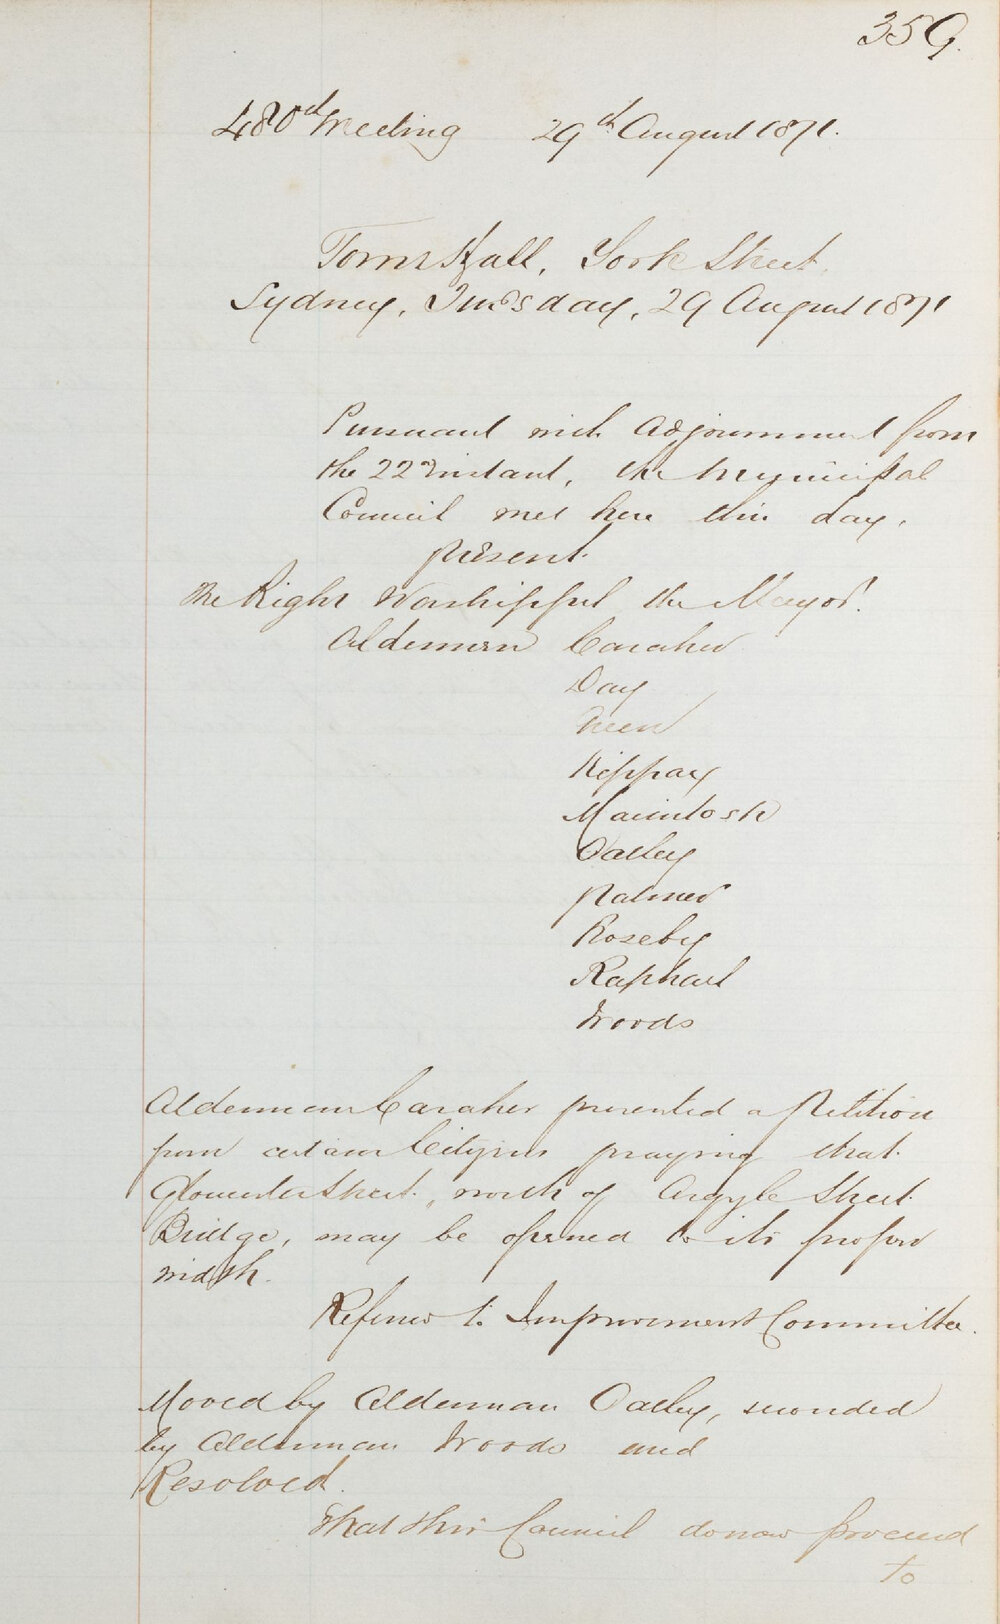 359.
480th Meeting 29th August 1871.
Town Hall, York Street.
Sydney, Tuesday, 29 August 1871
Pursuant with Adjournment from
the 22nd instant, the Municipal
Council met here this day,
present.
The Right Worshipful the Mayor.
Aldermen Caraher
Day
Green
Kippax
Macintosh
Oatley
Palmer
Roseby
Raphael
Woods
Alderman Caraher presented a Petition
from certain Citizens praying that
Gloucester Street, north of Argyle Street
Bridge, may be opened to its proper
width.
Referred to Improvement Committee.
Moved by Alderman Oatley, seconded
by Alderman Woods and
Resolved.
That this Council do now proceed
to